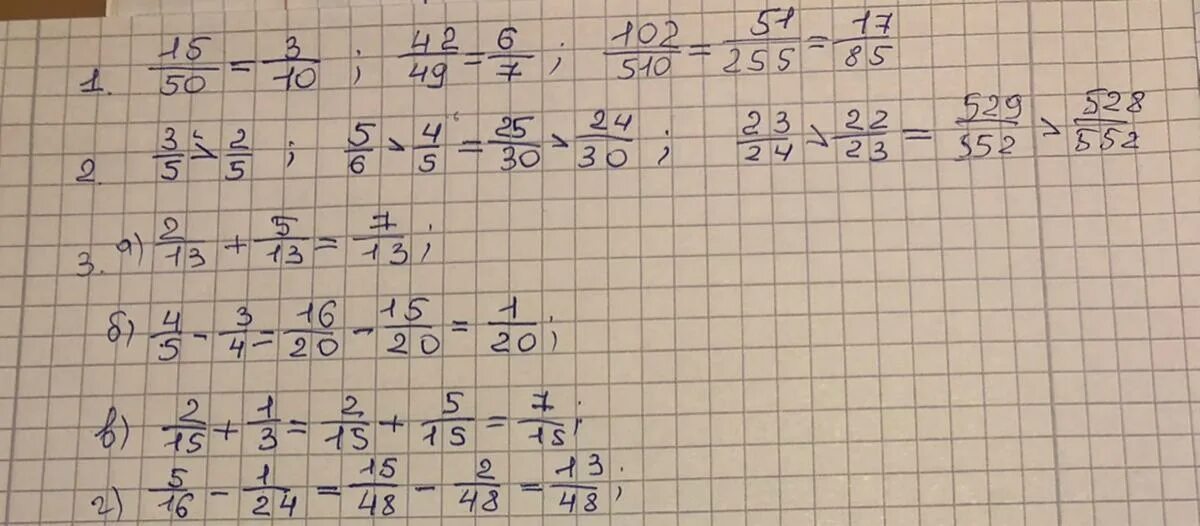 1. 15/50 = 3/10 ; 42/49 = 6/7 ; 102/510 = 51/255 = 17/85
2. 3/5 > 2/5 ; 5/6 > 4/5 = 25/30 > 24/30 ; 23/24 > 22/23 = 529/552 > 528/552
3. а) 2/13 + 5/13 = 7/13 ;
б) 4/5 - 3/4 = 16/20 - 15/20 = 1/20 ;
в) 2/15 + 1/3 = 2/15 + 5/15 = 7/15 ;
г) 5/16 - 1/24 = 15/48 - 2/48 = 13/48 ;